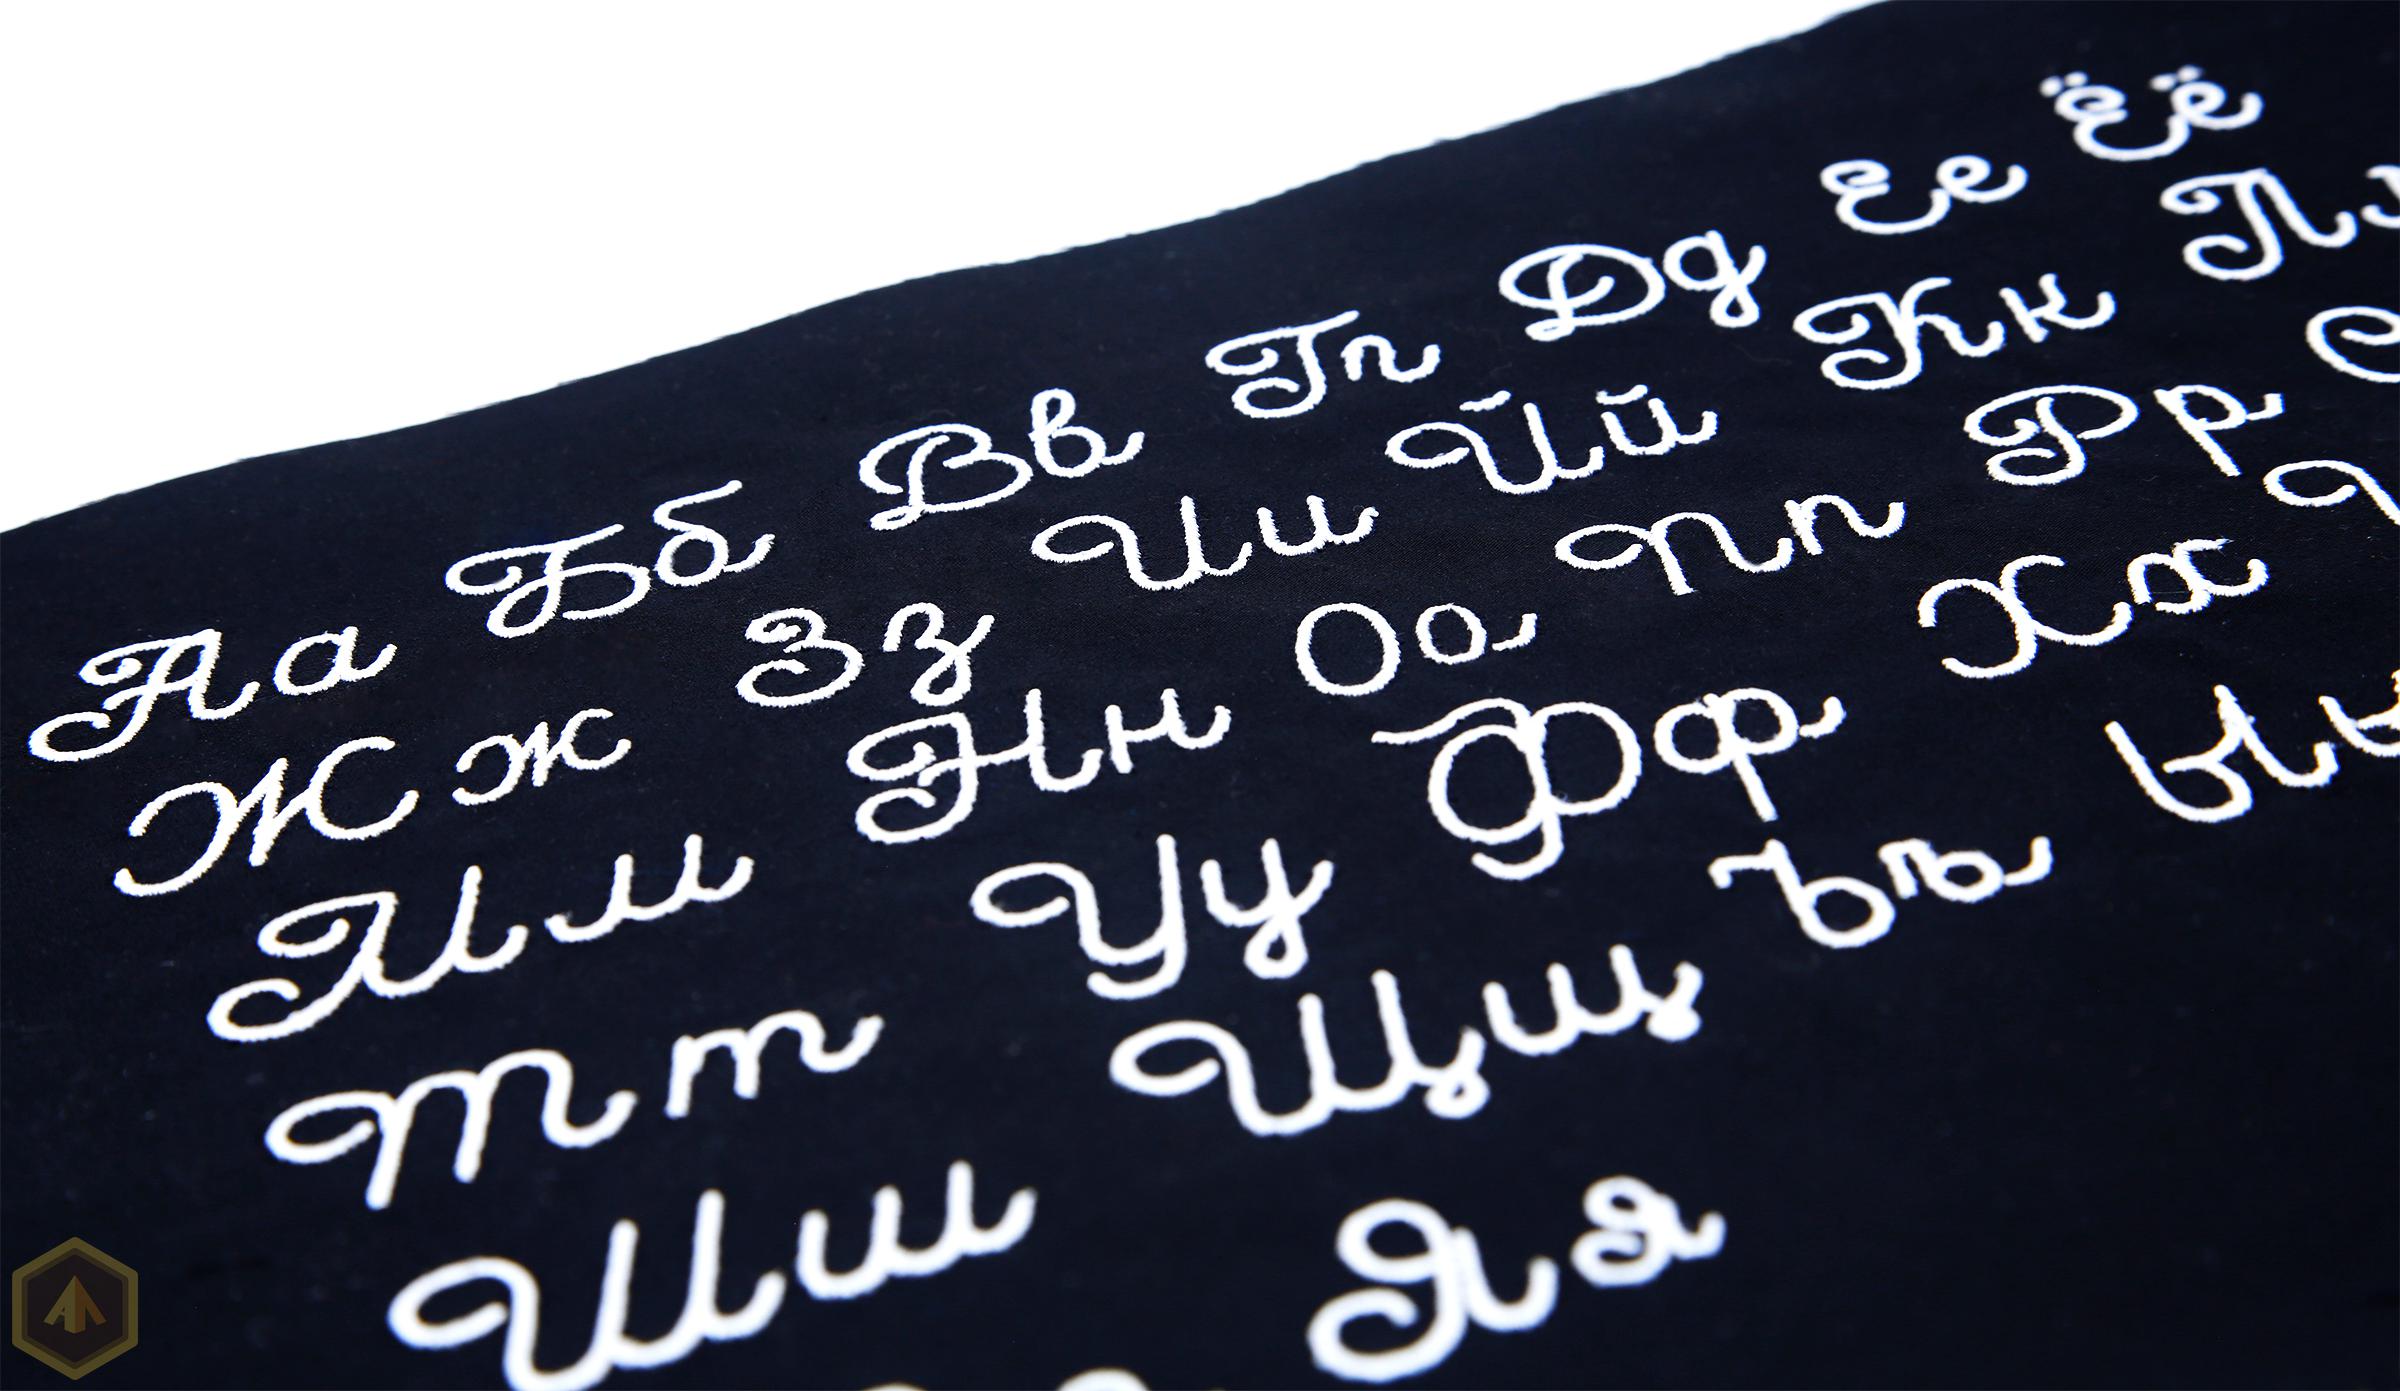 Аа Бб Вв Гг Дд Ее Ёё
Жж Зз Ии Йй Кк Л
Мм Нн Оо Пп Рр С
Тт Уу Фф Хх
Шш Щщ Ъъ Ы
Яя